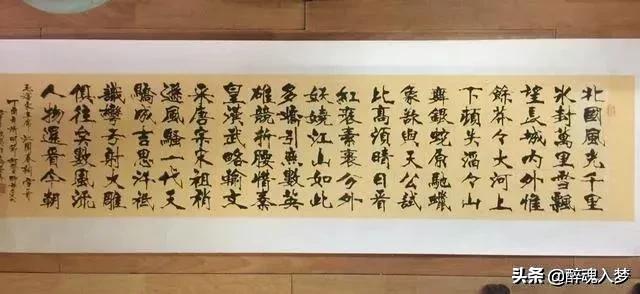 北國風光千里
冰封萬里雪飄
望長城內外惟
餘莽々大河上
下頓失滔々山
舞銀蛇原馳蠟
象欲與天公試
比高須晴日看
紅裝素裹分外
妖嬈江山如此
多嬌引無數英
雄競折腰惜秦
皇漢武略輸文
采唐宗宋祖稍
遜風騷一代天
驕成吉思汗祗
識彎弓射大雕
俱往矣數風流
人物還看今朝
丁酉年
头条 @醉魂入梦